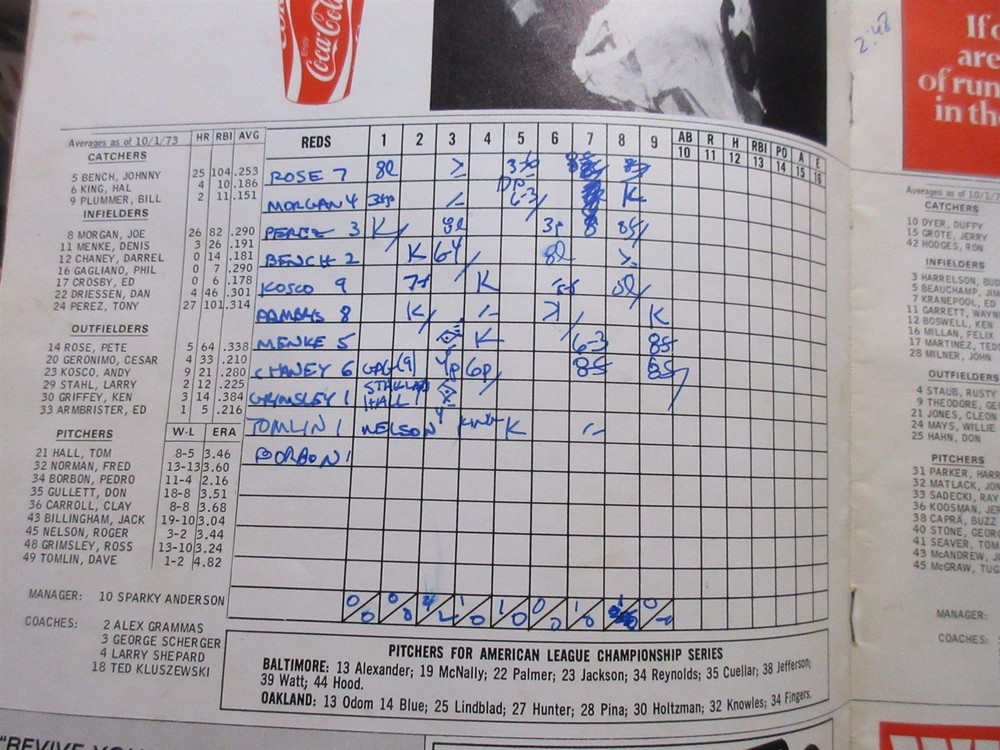 Enjoy
Coca-Cola
2:48
If c
are
of run
in the
Averages as of 10/1/73 HR RBI AVG
CATCHERS
5 BENCH, JOHNNY 25 104 .253
6 KING, HAL 4 10 .186
9 PLUMMER, BILL 2 11 .151
INFIELDERS
8 MORGAN, JOE 26 82 .290
11 MENKE, DENIS 3 26 .191
12 CHANEY, DARREL 0 14 .181
16 GAGLIANO, PHIL 0 7 .290
17 CROSBY, ED 0 6 .178
22 DRIESSEN, DAN 4 46 .301
24 PEREZ, TONY 27 101 .314
OUTFIELDERS
14 ROSE, PETE 5 64 .338
20 GERONIMO, CESAR 4 33 .210
23 KOSCO, ANDY 9 21 .280
29 STAHL, LARRY 2 12 .225
30 GRIFFEY, KEN 3 14 .384
33 ARMBRISTER, ED 1 5 .216
PITCHERS W-L ERA
21 HALL, TOM 8-5 3.46
32 NORMAN, FRED 13-13 3.60
34 BORBON, PEDRO 11-4 2.16
35 GULLETT, DON 18-8 3.51
36 CARROLL, CLAY 8-8 3.68
43 BILLINGHAM, JACK 19-10 3.04
45 NELSON, ROGER 3-2 3.44
48 GRIMSLEY, ROSS 13-10 3.24
49 TOMLIN, DAVE 1-2 4.82
MANAGER: 10 SPARKY ANDERSON
COACHES: 2 ALEX GRAMMAS
3 GEORGE SCHERGER
4 LARRY SHEPARD
18 TED KLUSZEWSKI
REDS 1 2 3 4 5 6 7 8 9 AB 10 R 11 H 12 RBI 13 PO 14 A 15 E 16
ROSE 7
MORGAN 4
PEREZ 3 K
BENCH 2 K 64
KOSCO 9 K
8 K K
MENKE 5 K 6-3 85
CHANEY 6 GAG(9) 4p 6p 85 85
GRIMSLEY 1 STAHL HALL
TOMLIN 1 NELSON KING K
BORBON 1
PITCHERS FOR AMERICAN LEAGUE CHAMPIONSHIP SERIES
BALTIMORE: 13 Alexander; 19 McNally; 22 Palmer; 23 Jackson; 34 Reynolds; 35 Cuellar; 38 Jefferson;
39 Watt; 44 Hood.
OAKLAND: 13 Odom 14 Blue; 25 Lindblad; 27 Hunter; 28 Pina; 30 Holtzman; 32 Knowles; 34 Fingers.
Averages as of 10/1/7
CATCHERS
10 DYER, DUFFY
15 GROTE, JERRY
42 HODGES, RON
INFIELDERS
3 HARRELSON, BUD
5 BEAUCHAMP, JIM
7 KRANEPOOL, ED
11 GARRETT, WAYN
12 BOSWELL, KEN
16 MILLAN, FELIX
17 MARTINEZ, TED
28 MILNER, JOHN
OUTFIELDERS
4 STAUB, RUSTY
9 THEODORE, GE
21 JONES, CLEON
24 MAYS, WILLIE
25 HAHN, DON
PITCHERS
31 PARKER, HARR
32 MATLACK, JON
33 SADECKI, RAY
36 KOOSMAN, JER
38 CAPRA, BUZZ
40 STONE, GEORG
41 SEAVER, TOM
43 McANDREW, J
45 McGRAW, TUG
MANAGER:
COACHES:
"REVIVE YO